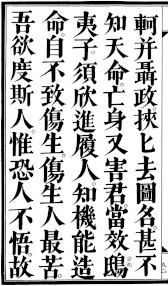 軻并聶政挾匕去圖名甚不
知天命亡身又害君當效鴟
夷子須欣進履人知機能造
命自不致傷生傷生人最苦
吾欲度斯人惟恐人不悟故